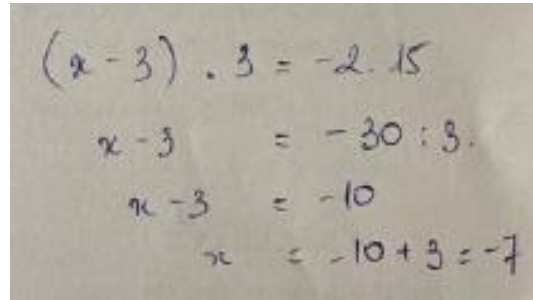 (x - 3) . 3 = -2. 15
x - 3 = - 30 : 3.
x - 3 = -10
x = -10 + 3 = -7